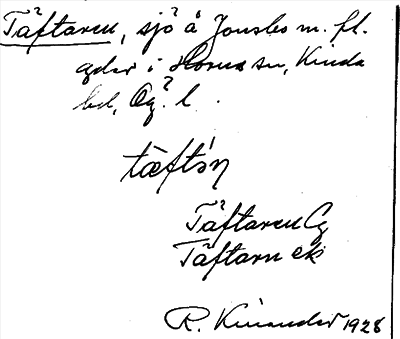 Täftaren, sjö å Jonsbo m. fl.
gdar i Horns sn, Kinda
hd, Ög. l.
tæftsn̥
Täftaren Cg
Täftarn ek
R. Kinander 1928